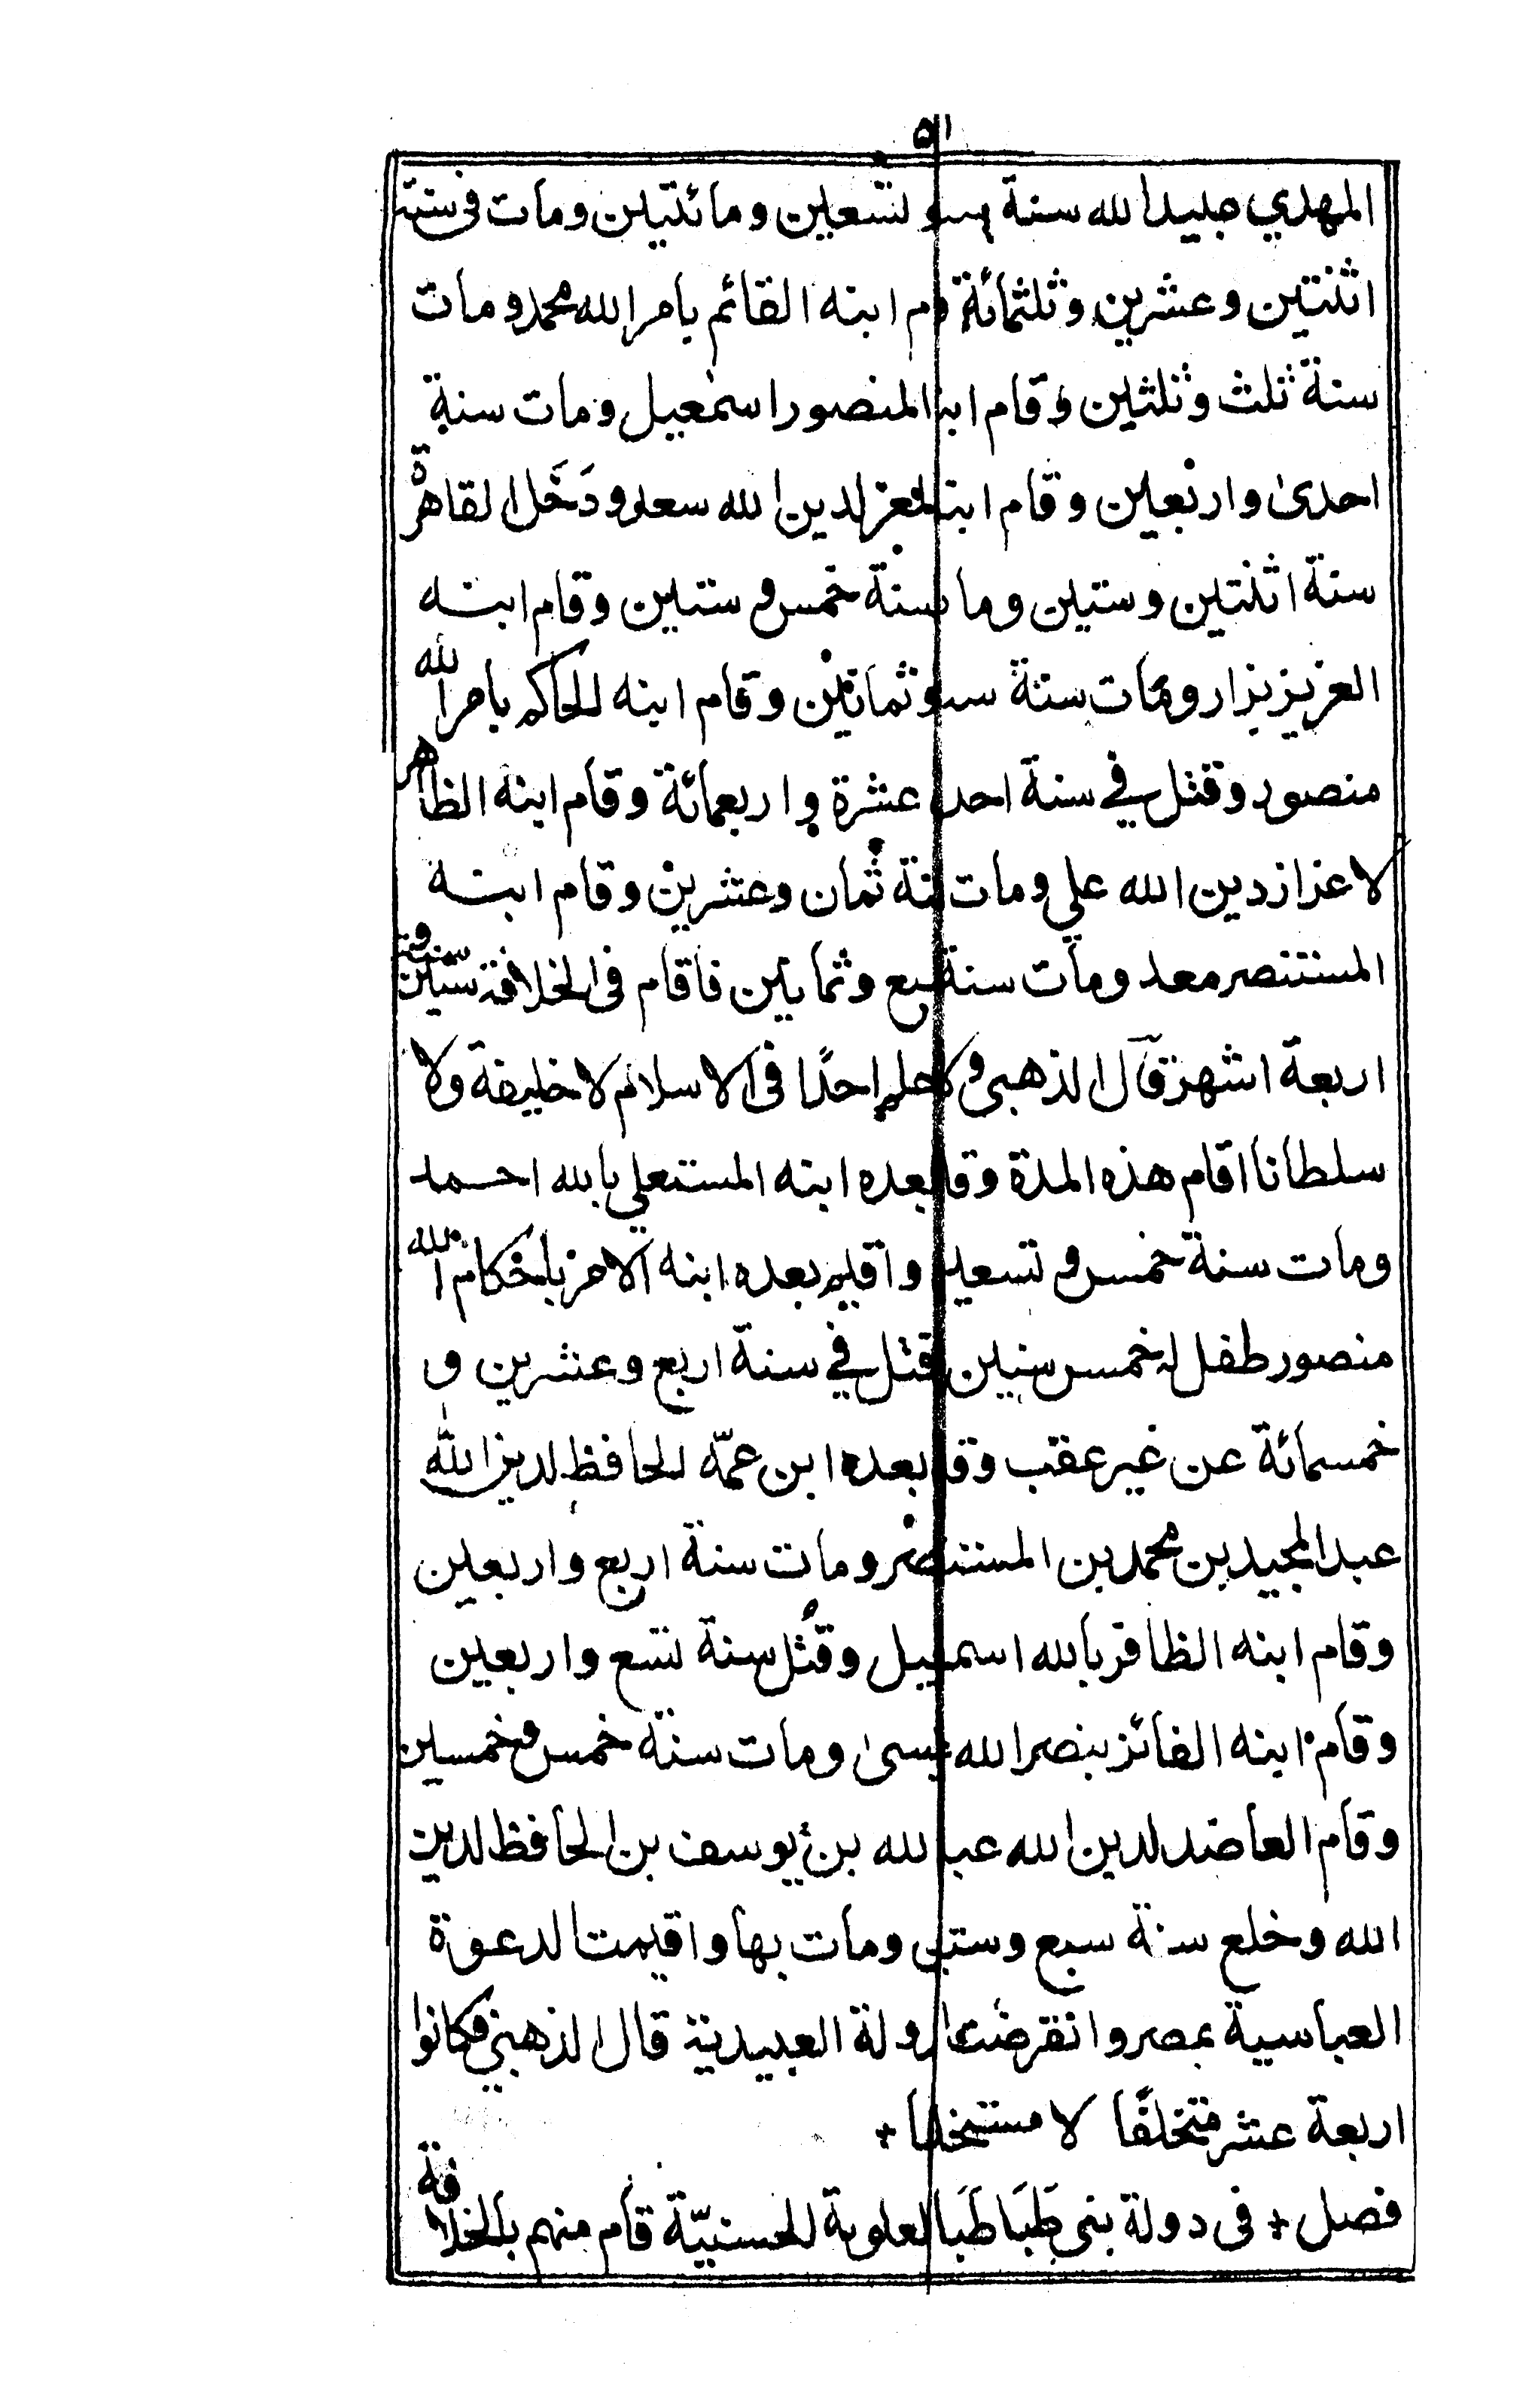 المهدي عبيد الله سنة ست وتسعين ومائتين ومات في سنة
اثنتين وعشرين وثلثمائة وقام ابنه القائم بامر الله محمد ومات
سنة ثلث وثلثين وقام ابنه المنصور اسمعيل ومات سنة
احدى واربعين وقام ابنه المعز لدين الله سعد ودَخَل القاهرة
سنة اثنتين وستين ومات سنة خمس وستين وقام ابنه
العزيز نزار ومات سنة ست وثمانين وقام ابنه الحاكم بامر الله
منصور وقتل في سنة احدى عشرة واربعمائة وقام ابنه الظاهر
لاعزاز دين الله علي ومات سنة ثمان وعشرين وقام ابنه
المستنصر معد ومات سنة سبع وثمانين فاقام في الخلافة ستين سنة و
اربعة اشهر قال الذهبي ولا اعلم احدًا في الاسلام لا خليفة ولا
سلطانا اقام هذه المدة وقام بعده ابنه المستعلي بالله احمد
ومات سنة خمس وتسعين واقيم بعده ابنه الامر باحكام الله
منصور طفل له خمس سنين وقتل في سنة اربع وعشرين و
خمسمائة عن غير عقب وقام بعده ابن عمّه الحافظ لدين الله
عبد المجيد بن محمد بن المستنصر ومات سنة اربع واربعين
وقام ابنه الظافر بالله اسمعيل وقُتل سنة تسع واربعين
وقام ابنه الفائز بنصر الله عيسى ومات سنة خمس وخمسين
وقام العاضد لدين الله عبد الله بن يوسف بن الحافظ لدين
الله وخلع سنة سبع وستين ومات بها واقيمت الدعوة
العباسية بمصر وانقرضت الدولة العبيدية قال الذهبي فكانوا
اربعة عشر متخلفًا لا مستخلفا +
فصل + في دولة بني طَبَاطَبَا العلوية الحسنيّة قام منهم بالخلافة